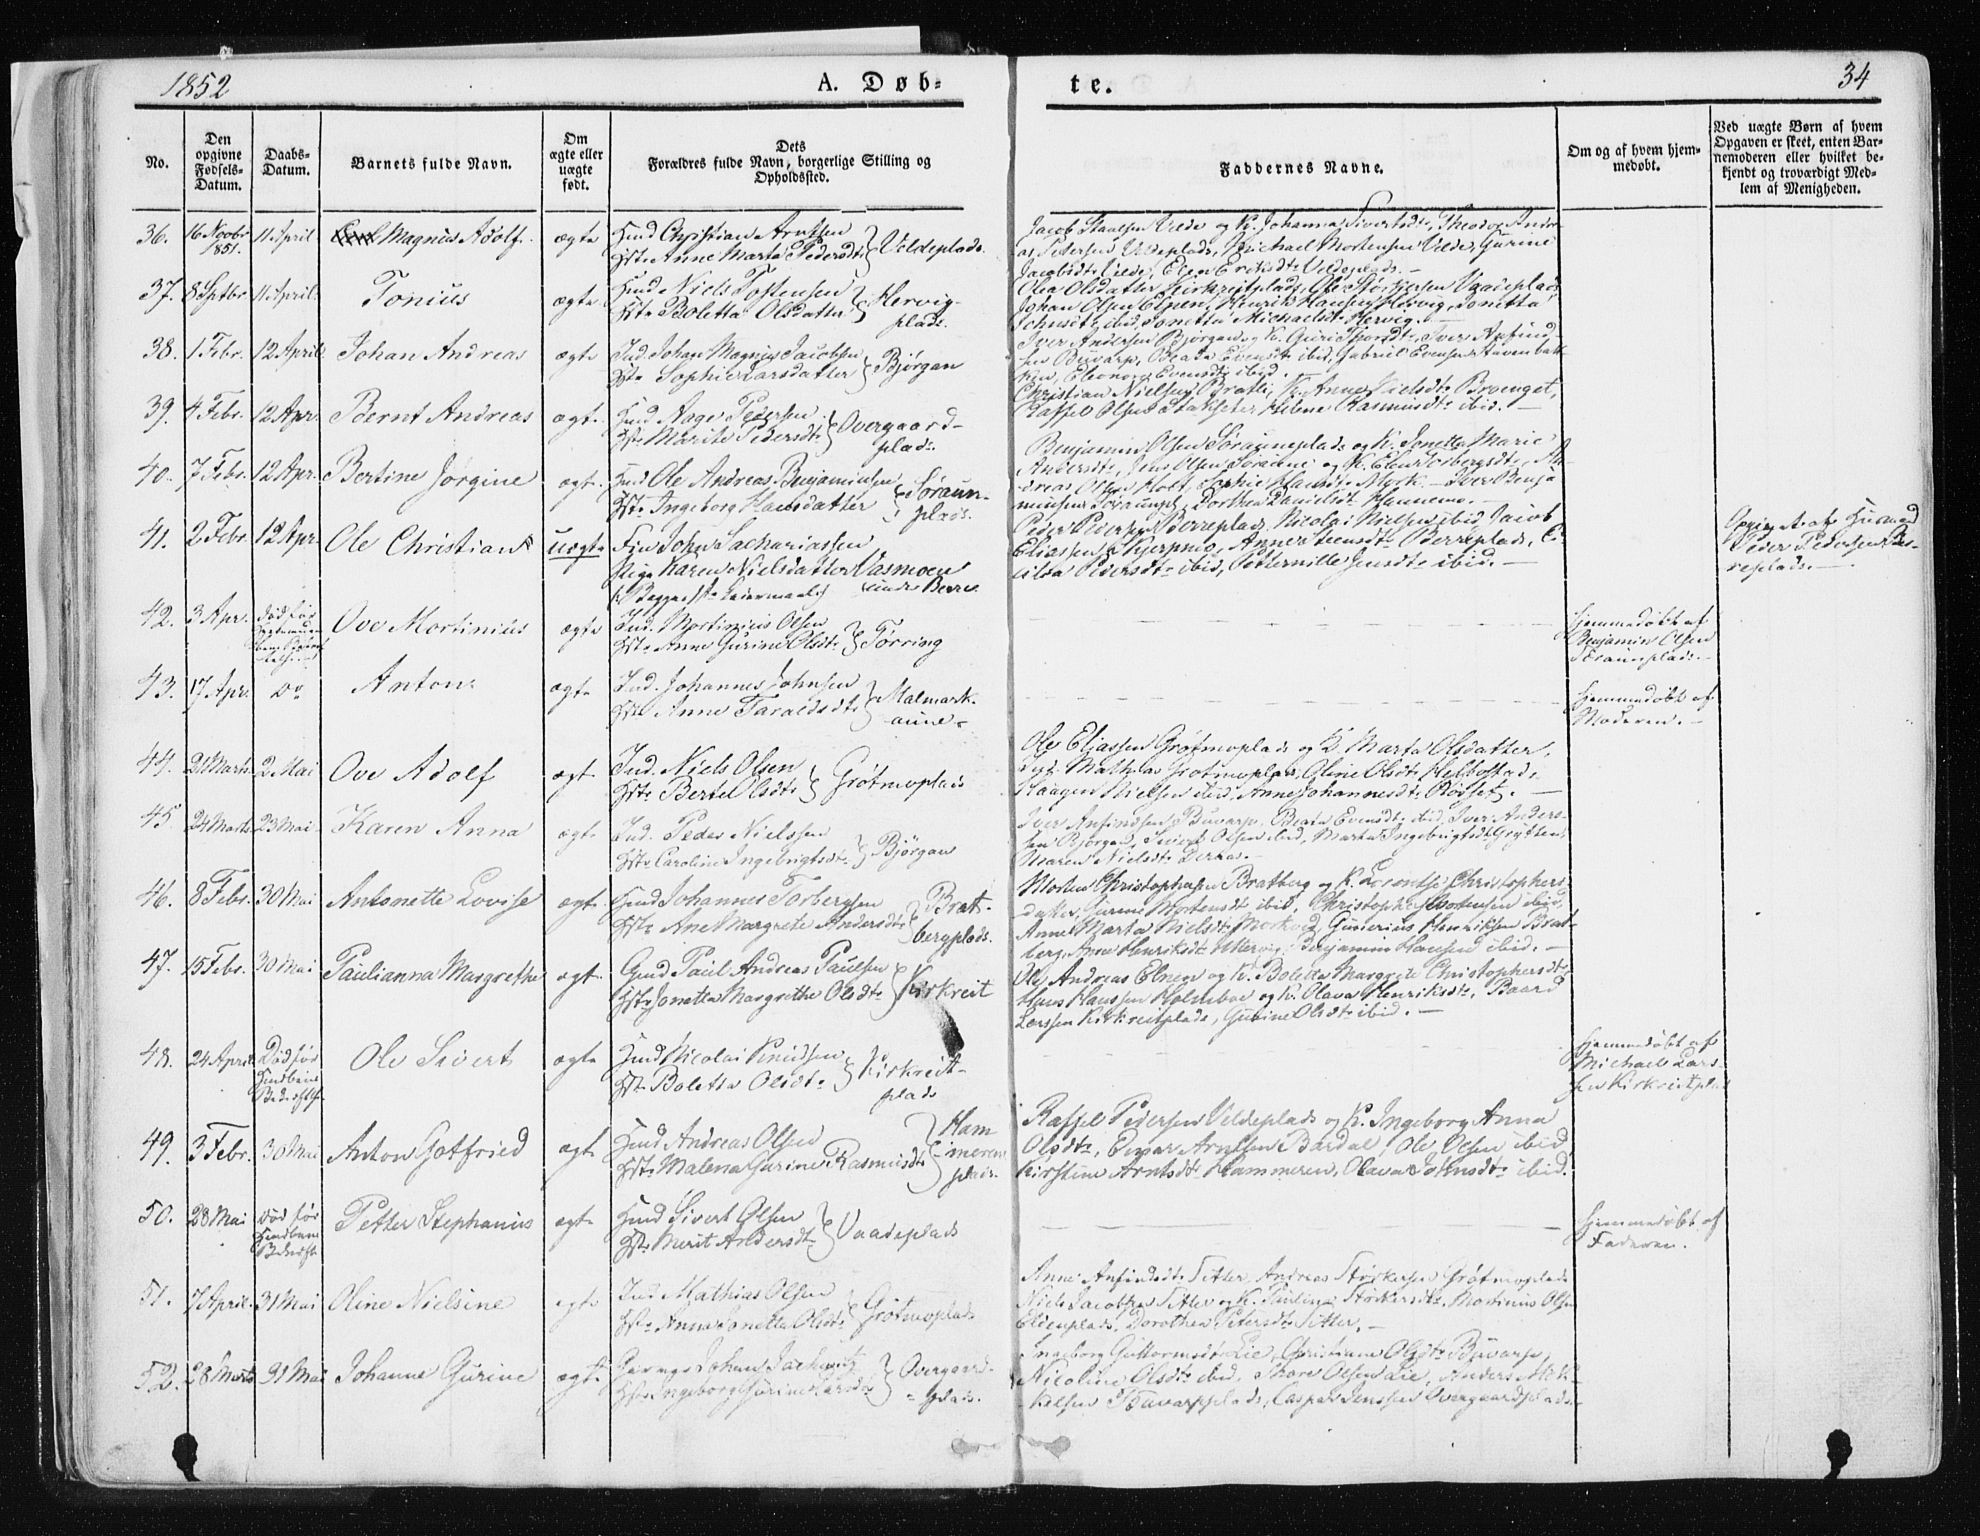 1852
A. Døb-
te.
34
No.
Den opgivne Fødsels-Datum.
Daabs-Datum.
Barnets fulde Navn.
Om ægte eller uægte født.
Dets Forældres fulde Navn, borgerlige Stilling og Opholdssted.
Faddernes Navne.
Om og af hvem hjem-medøbt.
Ved uægte Børn af hvem Opgaven er skeet, enten Bar-nemoderen eller hvilket be-kjendt og troværdigt Med-lem af Menigheden.
36. 16 Novbr 1851. 11 April Magnus Adolf. ægte Huusd Christian Arntsen
Hst: Anne Marta Pedersdt: } Veldeplads
Jacob Staalsen Velde og K. Johanna Sivertsdt:, Theodor Andre-
as Petersen Veldeplads, Michael Mortensen Velde, Gurine
Jacobsdt: Velde, Elen Eriksdt: Veldeplads. –
37. 8 Sptbr 11 April. Tonius ægte Huusd Niels Tostensen
Hst: Boletta Olsdatter } Hervig-
plads.
Olea Olsdatter Kirkreitplads, Ole Størkersen Vaadeplads
Johan Olsen Elnen, Henrik Hansen Hervig, Jonetta
ibid, Jonetta Michaelsdt: Hervig. –
38. 1 Febr. 12 April Johan Andreas ægte Ind. Johan Magnus Jacobsen
Hst: Sophie Larsdatter } Bjørgan
Iver Andersen Bjørgan og K. Guri Sjursdt:, Iver Anfind-
sen Buvarp, Beata Evensdt: ibid, Gabriel Evensen Stavenbak-
ken, Eleonora Evensdt: ibid.
39. 4 Febr. 12 Apr. Bernt Andreas ægte Huusd Aage Pedersen
Hst: Marite Pedersdt: } Overgaard-
plads
Christian Nielsen Bratli, K. Anne Nielsdt: Brænget,
Raffel Olsen Stakseter, Helene Rasmusdt: ibid. –
40. 7 Febr. 12 Apr. Bertine Jørgine ægte Huusd Ole Andreas Benjaminsen
Hst: Ingeborg Hansdatter } Søraun-
plads.
Benjamin Olsen Søraunplads og K. Jonetta Marie
Andersdt:, Jens Olsen Søraune og K. Elen Torbergsdt:, An-
dreas Olsen Holt, Sophie Hansdt: Mork. – Iver Benja-
minsen Søraunpl. Dorthea Danielsdt: Hannemo. –
41. 2 Febr. 12 Apr. Ole Christian uægte Fin John Zachariassen
Pige Karen Nielsdatter Vasmoen
(Begges 1ste Leiermaal) under Berre.
Peder Pedersen Berreplads, Nicolai Nielsen ibid, Jacob
Eliassen Skjerpmo, Anne Steensdt: Berreplads, E-
lisa Pedersdt: ibid, Petternille Jensdt: ibid. –
Opgivet af Huusmd
Peder Pedersen Ber-
replads. –
42. 3 Apr. Død før Ove Mortinius ægte Ind. Mortinius Olsen
Hst: Anne Gurine Olsdt: } Tørring
Hjemmedøbt af
Benjamin Olsen
Søraunplads. –
43. 17 Apr. Do Anton. ægte Ind. Johannes Johnsen
Hst: Anne Taraldsdt: } Malmark-
aune.
Hjemmedøbt af
Moderen. –
44. 21 Marts 2 Mai Ove Adolf ægt. Ind. Niels Olsen
Hst: Berte Olsdt: } Grøtmoplads
Ole Eliassen Grøtmoplads og K. Marta Olsdatter,
Mathias Grøtmoplads, Oline Olsdt: Helbostad,
Haagen Nielsen ibid, Anne Johannesdt: Røiset. –
45. 24 Marts 23 Mai Karen Anna ægte Ind. Peder Nielssen
Hst: Caroline Ingebrigtsdt: } Bjørgan
Iver Anfindsen Buvarp, Beata Evensdt: ibid, Iver Anders-
sen Bjørgan, Sivert Olsen ibid, Marta Ingebrigtsdt: Grytten,
Maren Nielsdt: Derraas. –
46. 8 Febr. 30 Mai Antonette Lovise ægte Huusd Johannes Torbergsen
Hst: Ane Margrete Andersdt: } Brat-
bergplads.
Morten Christophersen Bratberg og K. Lorentse Christophers-
datter, Gurine Mortensdt: ibid, Christopher Mortensen ibid,
Anne Marta Nielsdt: Mork, Gunerius Henriksen Brat-
berg, Anne Henriksdt: Hervig, Benjamin Hansen ibid. –
47. 15 Febr. 30 Mai Paulianna Margrethe ægt. Gmd Paul Andreas Paulsen
Hst: Jonetta Margrethe Olsdt: } Kirkreit
Ole Andreas Elnen og K. Boletta Margrete Christophersdt:
Hans Hanssen Holmboe og K. Olava Henriksdt:, Baard
Larssen Kirkreitplads, Gurine Olsdt: ibid. –
48. 24 April Død før Ole Sivert ægte Huusd Nicolai Knudsen
Hst: Boletta Olsdt: } Kirkreit-
plads
Hjemmedøbt af
Michael Lars-
sen Kirkreitpla
49. 3 Febr. 30 Mai Anton Gotfried ægt. Huusd Andreas Olsen
Hst: Malena Gurine Rasmusdt: } Ham-
meren
plads.
Raffel Pedersen Veldeplads og K. Ingeborg Anna
Olsdt:, Einar Arntsen Bardal, Ole Olsen ibid,
Kirstine Arntsdt: Hammeren, Olava Johnsdt: ibid.
50. 28 Mai Død før Petter Stephanius ægte Huusd Sivert Olsen
Hst: Merit Andersdt: } Vaadeplads
Hjemmedøbt af
Faderen.
51. 7 April. 31 Mai Oline Nielsine ægte Ind Mathias Olsen
Hst: Anna Jonetta Olsdt: } Grøtmoplads
Anne Anfindsdt: Tetlie, Andreas Størkersen Grøtmoplads
Niels Jacobsen Tetlie og K. Pauline Størkersdt:, Mortinus Olsen
Elnenplads, Dorothea Petersdt: Tetlie. –
52. 28 Marts 31 Mai Johanne Gurine ægt. Johan
Hst: Ingeborg Gurine Larsdt: } Overgaard-
plads.
Ingeborg Guttormsdt: Lie, Christiane Olsdt: Buvarp,
Nicoline Olsdt: ibid, Thore Olsen Lie, Anders Mik-
kelsen Buvarpplads, Caspar Jenssen Overgaardplads.